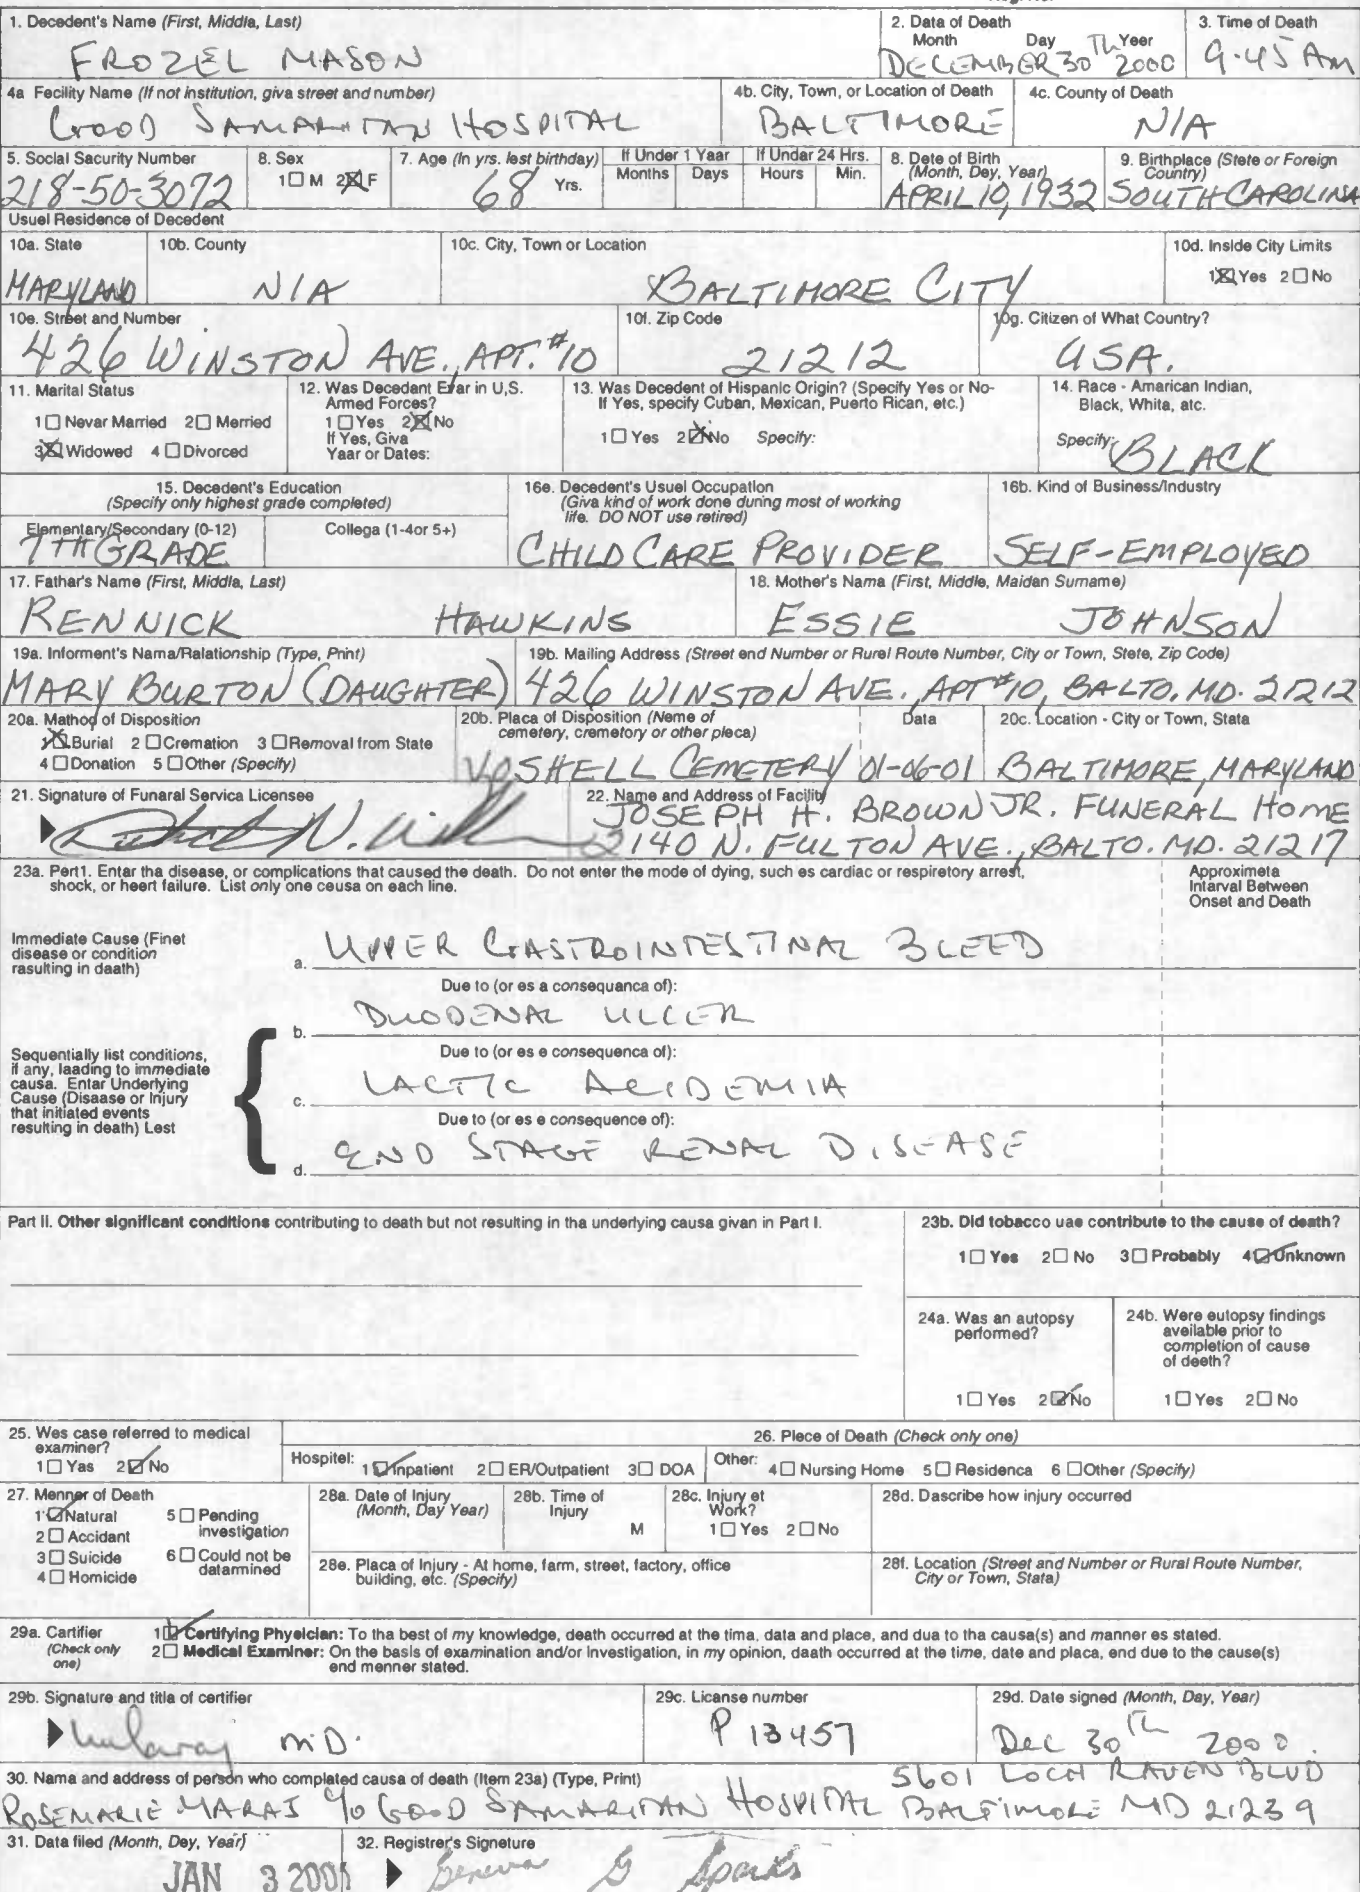 1. Decedent's Name (First, Middle, Last)
FROZEL MASON
2. Data of Death
Month Day Year
DECEMBER 30Th 2000
3. Time of Death
9.45 Am
4a Fecility Name (If not institution, giva street and number)
GOOD SAMARITAN HOSPITAL
4b. City, Town, or Location of Death
BALTIMORE
4c. County of Death
N/A
5. Social Sacurity Number
218-50-3072
8. Sex
1☐ M 2☒ F
7. Age (In yrs. lest birthday)
68 Yrs.
If Under 1 Yaar
Months Days
If Under 24 Hrs.
Hours Min.
8. Dete of Birth
(Month, Dey, Year)
APRIL 10, 1932
9. Birthplace (Stete or Foreign
Country)
SOUTH CAROLINA
Usuel Residence of Decedent
10a. State
MARYLAND
10b. County
N/A
10c. City, Town or Location
BALTIMORE CITY
10d. Inside City Limits
1☒ Yes 2☐ No
10e. Street and Number
426 WINSTON AVE., APT. #10
10f. Zip Code
21212
10g. Citizen of What Country?
USA.
11. Marital Status
1☐ Nevar Married 2☐ Merried
3☒ Widowed 4☐ Divorced
12. Was Decedant Evar in U.S.
Armed Forces?
1☐ Yes 2☒ No
If Yes, Giva
Yaar or Dates:
13. Was Decedent of Hispanic Origin? (Specify Yes or No-
If Yes, specify Cuban, Mexican, Puerto Rican, etc.)
1☐ Yes 2☒ No Specify:
14. Race - Amarican Indian,
Black, Whita, atc.
Specify: BLACK
15. Decedent's Education
(Specify only highest grade completed)
Elementary/Secondary (0-12)
7TH GRADE
Collega (1-4or 5+)
16e. Decedent's Usuel Occupation
(Giva kind of work done during most of working
life. DO NOT use retired)
CHILD CARE PROVIDER
16b. Kind of Business/Industry
SELF-EMPLOYED
17. Fathar's Name (First, Middla, Last)
RENNICK HAWKINS
18. Mother's Nama (First, Middle, Maidan Sumame)
ESSIE JOHNSON
19a. Informent's Nama/Ralationship (Type, Print)
MARY BURTON (DAUGHTER)
19b. Mailing Address (Street end Number or Rurel Route Number, City or Town, Stete, Zip Code)
426 WINSTON AVE. APT #10, BALTO. MD. 21212
20a. Mathod of Disposition
1☒ Burial 2 ☐Cremation 3 ☐Removal from State
4☐Donation 5☐Other (Specify)
20b. Placa of Disposition (Neme of
cemetery, cremetory or other pleca)
VOSHELL CEMETERY
Data
01-06-01
20c. Location - City or Town, Stata
BALTIMORE, MARYLAND
21. Signature of Funaral Servica Licensee
22. Name and Address of Facility
JOSEPH H. BROWN JR. FUNERAL HOME
2140 N. FULTON AVE., BALTO. MD. 21217
23a. Pert1. Entar tha disease, or complications that caused the death. Do not enter the mode of dying, such es cardiac or respiretory arrest,
shock, or heert failure. List only one ceusa on each line.
Approximeta
Intarval Between
Onset and Death
Immediate Cause (Finet
disease or condition
rasulting in daath)
a. UPPER GASTROINTESTINAL BLEED
Due to (or es a consequanca of):
b. DUODENAL ULCER
Due to (or es e consequenca of):
c. LACTIC ACIDEMIA
Due to (or es e consequence of):
d. END STAGE RENAL DISEASE
Sequentially list conditions,
if any, laading to immediate
causa. Entar Underlying
Cause (Disaase or Injury
that initiated events
resulting in death) Lest
Part II. Other significant conditions contributing to death but not resulting in tha underlying causa givan in Part I.
23b. Did tobacco uae contribute to the cause of death?
1☐ Yes 2☐ No 3☐ Probably 4☑Unknown
24a. Was an autopsy
performed?
1☐ Yes 2☑No
24b. Were eutopsy findings
aveilable prior to
completion of cause
of deeth?
1☐ Yes 2☐ No
25. Wes case referred to medical
examiner?
1☐ Yas 2☑ No
26. Plece of Death (Check only one)
Hospitel: 1☑Inpatient 2☐ ER/Outpatient 3☐ DOA
Other: 4☐ Nursing Home 5☐ Residenca 6 ☐Other (Specify)
27. Menner of Death
1☑Natural
2☐ Accidant
3☐ Suicide
4☐ Homicide
5☐ Pending
investigation
6☐ Could not be
datarmined
28a. Date of Injury
(Month, Day Year)
28b. Time of
Injury
M
28c. Injury et
Work?
1☐ Yes 2☐ No
28d. Dascribe how injury occurred
28e. Placa of Injury - At home, farm, street, factory, office
building, etc. (Specify)
28f. Location (Street and Number or Rural Route Number,
City or Town, Stata)
29a. Cartifier
(Check only
one)
1☑ Certifying Phyeician: To tha best of my knowledge, death occurred at the tima, data and place, and dua to tha causa(s) and manner es stated.
2☐ Medical Examiner: On the basis of examination and/or Investigation, in my opinion, daath occurred at the time, date and placa, end due to the cause(s)
end menner stated.
29b. Signature and titla of certifier
M.D.
29c. Licanse number
P 13457
29d. Date signed (Month, Day, Year)
Dec 30th 2000.
30. Nama and address of person who complated causa of death (Item 23a) (Type, Print)
5601 LOCH RAVEN BLVD
ROSEMARIE MARAJ c/o GOOD SAMARITAN HOSPITAL BALTIMORE MD 21239
31. Data filed (Month, Dey, Year)
JAN 3 2001
32. Registrer's Signature
Geneva G Sparks